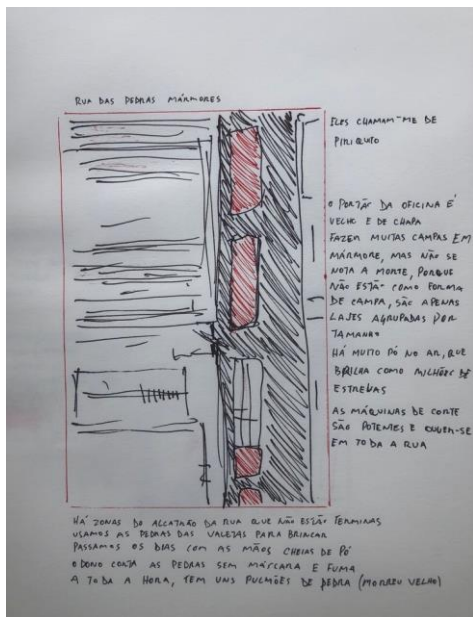 RUA DAS PEDRAS MÁRMORES
ELES CHAMAM-ME DE
PIRIQUITO
O PORTÃO DA OFICINA É
VELHO E DE CHAPA
FAZEM MUITAS CAMPAS EM
MÁRMORE, MAS NÃO SE
NOTA A MORTE, PORQUE
NÃO ESTÃO COMO FORMA
DE CAMPA, SÃO APENAS
LAJES AGRUPADAS POR
TAMANHO
HÁ MUITO PÓ NO AR, QUE
BRILHA COMO MILHÕES DE
ESTRELAS
AS MÁQUINAS DE CORTE
SÃO POTENTES E OUVEM-SE
EM TODA A RUA
HÁ ZONAS DO ALCATRÃO DA RUA QUE NÃO ESTÃO TERMINAS
USAMOS AS PEDRAS DAS VALETAS PARA BRINCAR
PASSAMOS OS DIAS COM AS MÃOS CHEIAS DE PÓ
O DONO CORTA AS PEDRAS SEM MÁSCARA E FUMA
A TODA A HORA, TEM UNS PULMÕES DE PEDRA (MORREU VELHO)